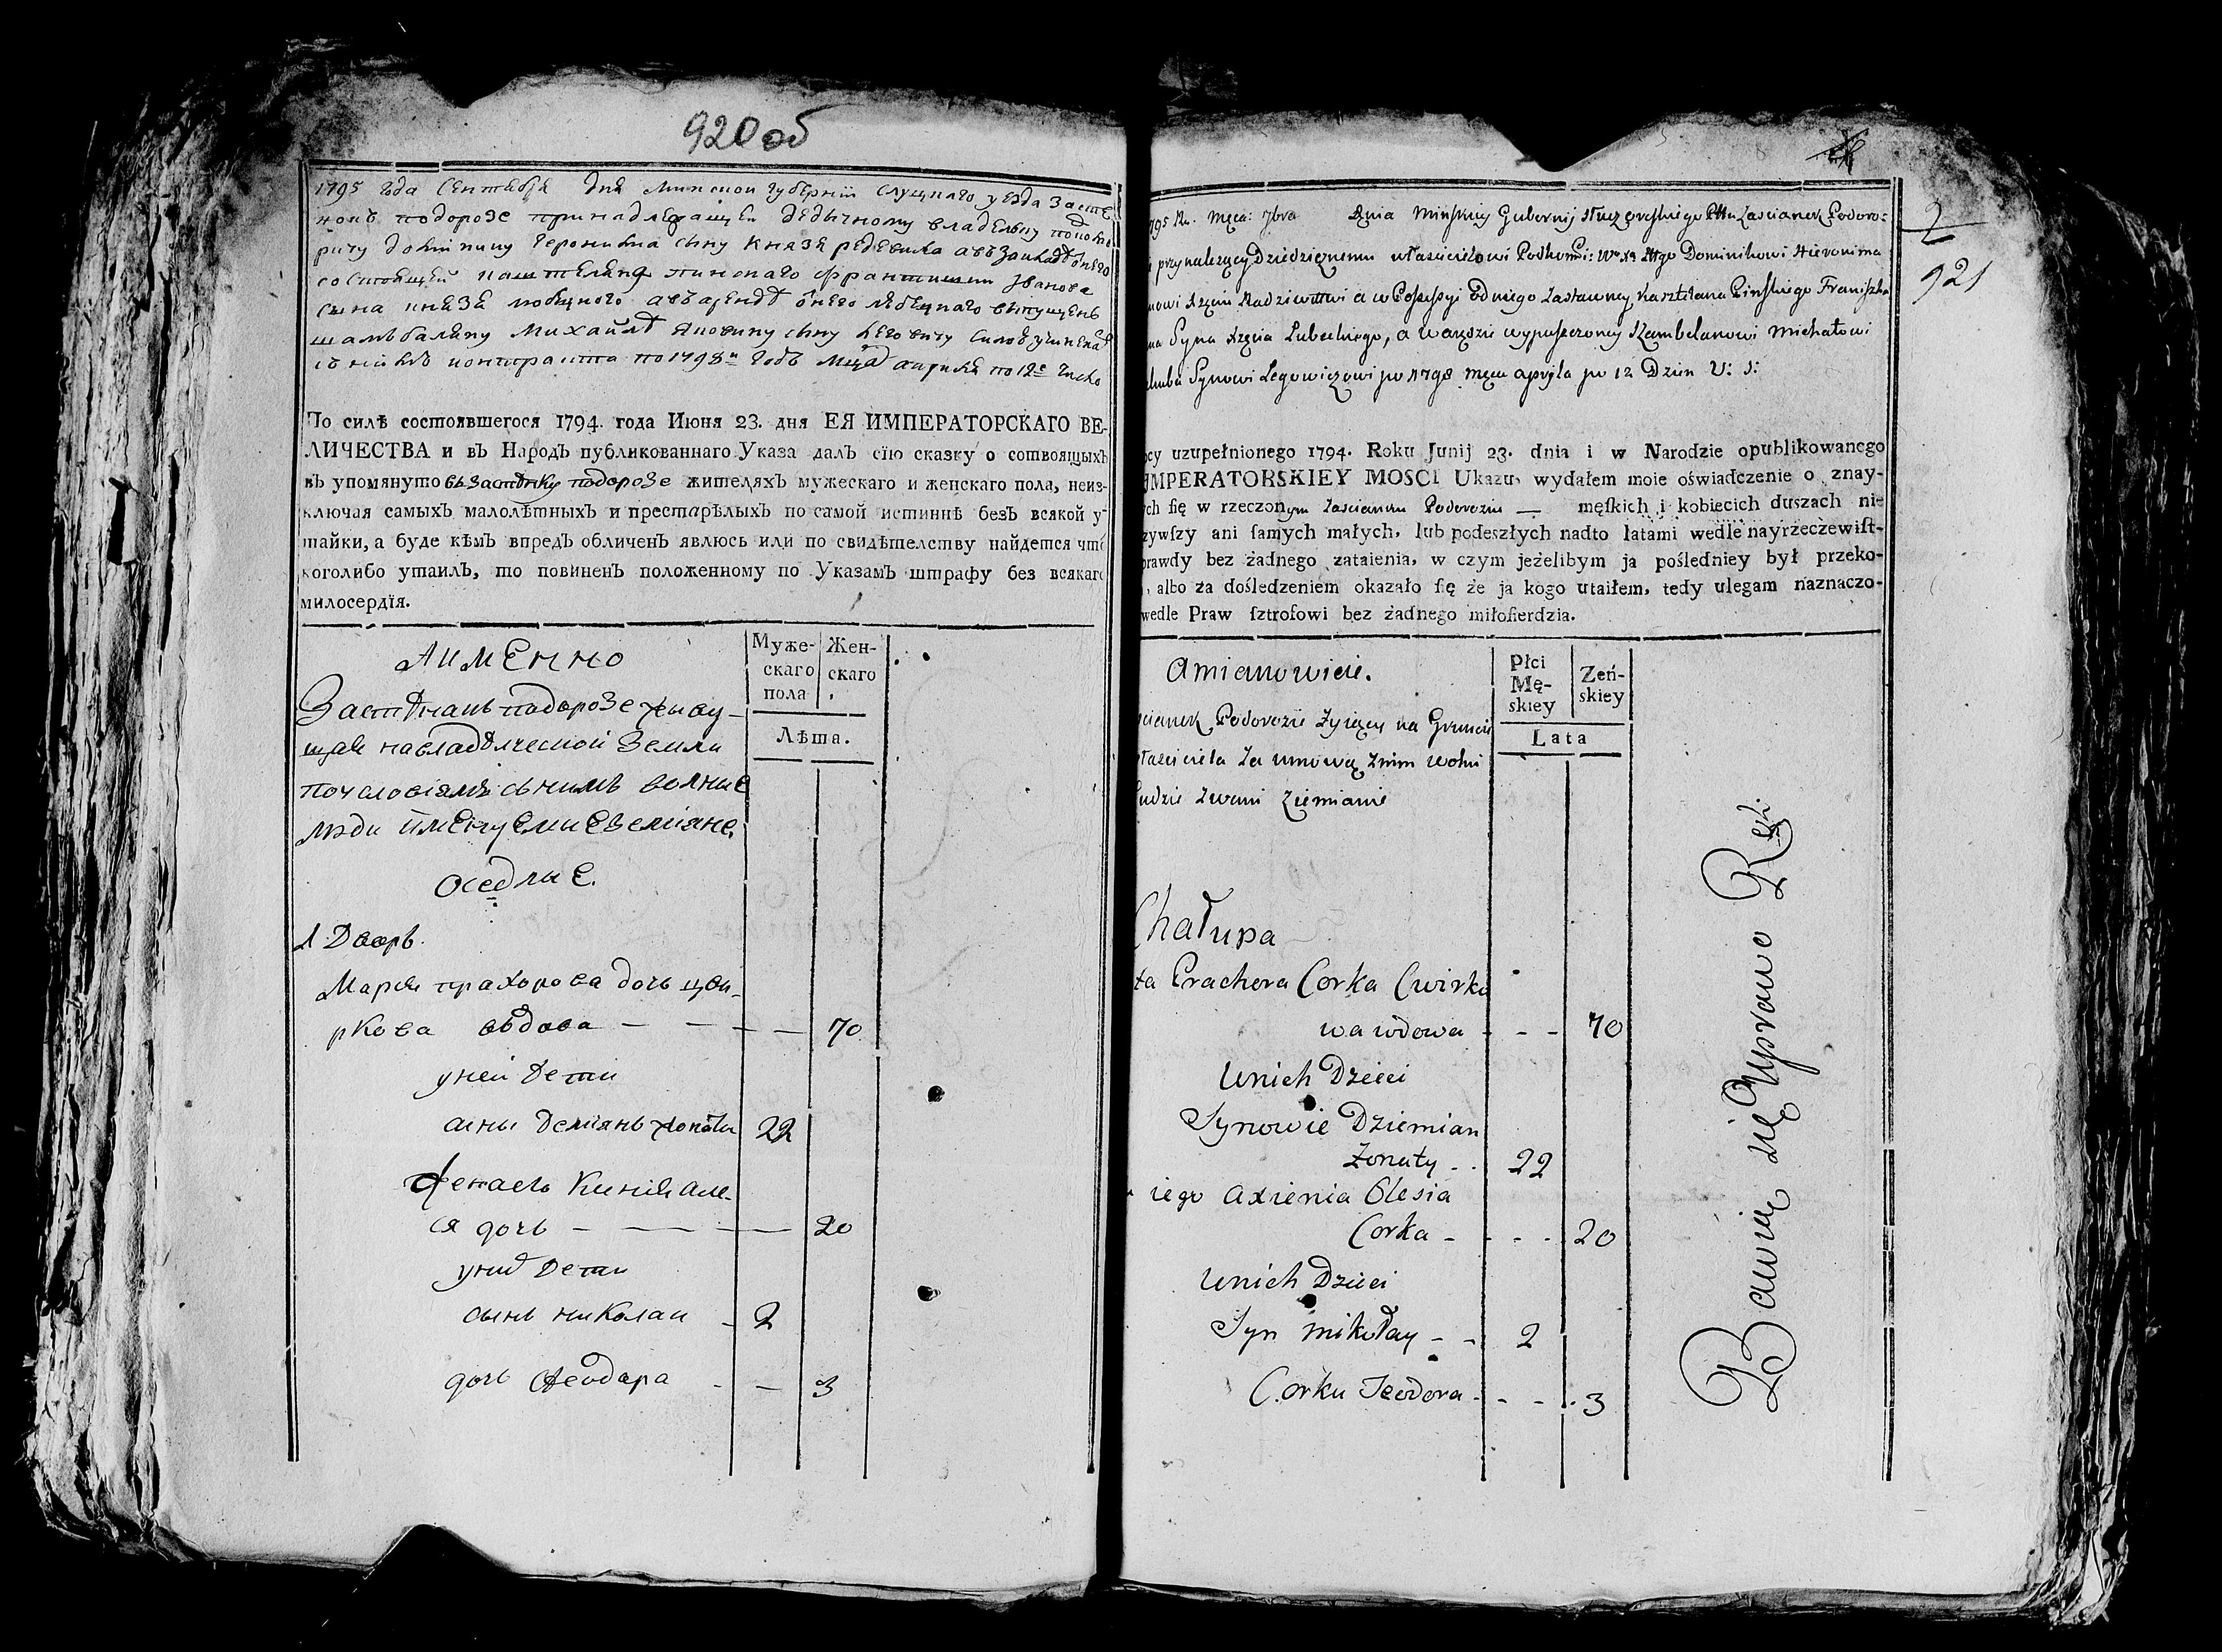 920 об
1795 года Сентября дня Минской губернии Слуцкаго уезда Засте
нокъ подорозе принадлежащей дедичному владельцу подкомо
ричу доминику Иеронима сыну Князя редевила авъ Закладе онего
состоящей каштеляна пинскаго францишки Иванова
сына князя любецкого авъ аренде онего любецкого выпущенъ
шамбаляну Михайле сыну Леговичу
контракта по 1798и годъ Мца априля по 12е число
По силѣ состоявшегося 1794. года Июня 23. дня ЕЯ ИМПЕРАТОРСКАГО ВЕ-
ЛИЧЕСТВА и въ НародЪ публикованнаго Указа далЪ сїю сказку о сотвоящыхЪ
вЪ упомянуто въ застенку подорозе жителяхЪ мужескаго и женскаго пола, неиз-
ключая самыхЪ малолѣтныхЪ и престарѣлыхЪ по самой истиннѣ безЪ всякой у
тайки, а буде кѣмЪ впредЪ обличенЪ явлюсь или по свидѣтелству найдется что
коголибо утаилЪ, то повиненЪ положенному по УказамЪ штрафу без всякаго
милосердїя.
Аименно
Муже-
скаго
пола
Жен-
скаго
Лѣта.
Застенакъ подорозе живу-
щая навладелческой Земли
поусловіямъ сънимъ волные
люди именуемые Земляне,
Оседлые.
1 Дворъ.
Марья прахорова дочь цви-
ркова вдова — — — — 70
уней дети
сыны демянъ жонаты 22
Женаего Ксиня але-
ся дочь — — — 20
унихъ дети
сынъ николаи - 2
дочь феодара - — 3
2
921
795 Ru. Męca: 7bra Dnia Minskiey Gubernij Słuz oreskiego Pttu Zascianek Podoro:
przynalezący Dziedzicznemu własicielowi Podkom: Dominikowi Hieronima
nowi Xzęciu Radziwiłłowi a w Possessyi Odniego Zastawney Kasztelana Pinskiego Franiszka
na Syna Xzęcia Lubeckiego, a w arędzie wypuszczoney Szambelanowi Michałowi
kuba Synowi Legowiczowi po 1798 męca apryla po 12 Dzien V: S:
ocy uzupełnionego 1794. Roku Junij 23. dnia i w Narodzie opublikowanego
IMPERATORSKIEY MOSCI Ukazu, wydałem moie oświadczenie o znay-
ych ſię w rzeczonym Zascianku Podoroziu — męſkich i kobiecich duszach nie
zywſzy ani ſamych małych, lub podeszłych nadto latami wedle nayrzeczewiſt-
prawdy bez żadnego zataienia, w czym jeżelibym ja poślednieу był przeko-
, albo za dośledzeniem okazało ſię że ja kogo utaiłem, tedy ulegam naznaczo-
wedle Praw ſztrofowi bez żadnego miłoſierdzia.
Amianowicie.
Płci
Mę-
skiey
Zeń-
skiey
Lata
scianek Podorozie Zyiący na Gruncie
własiciela Za umową Znim wolni
Ludzie Zwani Ziemianie
Chałupa
ta Prachora Corka Cwirko
wa wdowa - - - 70
Unich Dzieci
Synowie Dziemian
Zonaty - . 22
iego Axienia Olesia
Corka - - - - 20
Unich Dzieci
Syn Mikołay - - 2
Corka Teodora - - - . 3
Bawię się Uprawo Ręi: